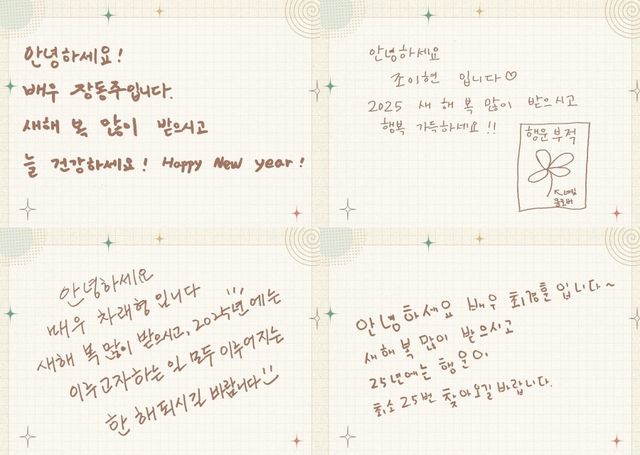 안녕하세요!
배우 장동주입니다.
새해 복 많이 받으시고
늘 건강하세요! Happy New year!
안녕하세요
조이현 입니다♡
2025 새 해 복 많이 받으시고
행복 가득하세요!!
행운부적
네잎
클로버
안녕하세요
배우 차래형입니다
새해 복 많이 받으시고, 2025년에는
이루고자하는 일 모두 이루어지는
한 해 되시길 바랍니다
안녕하세요 배우 최경훈입니다~
새해 복 많이 받으시고
25년에는 행운이
최소 25번 찾아오길 바랍니다.